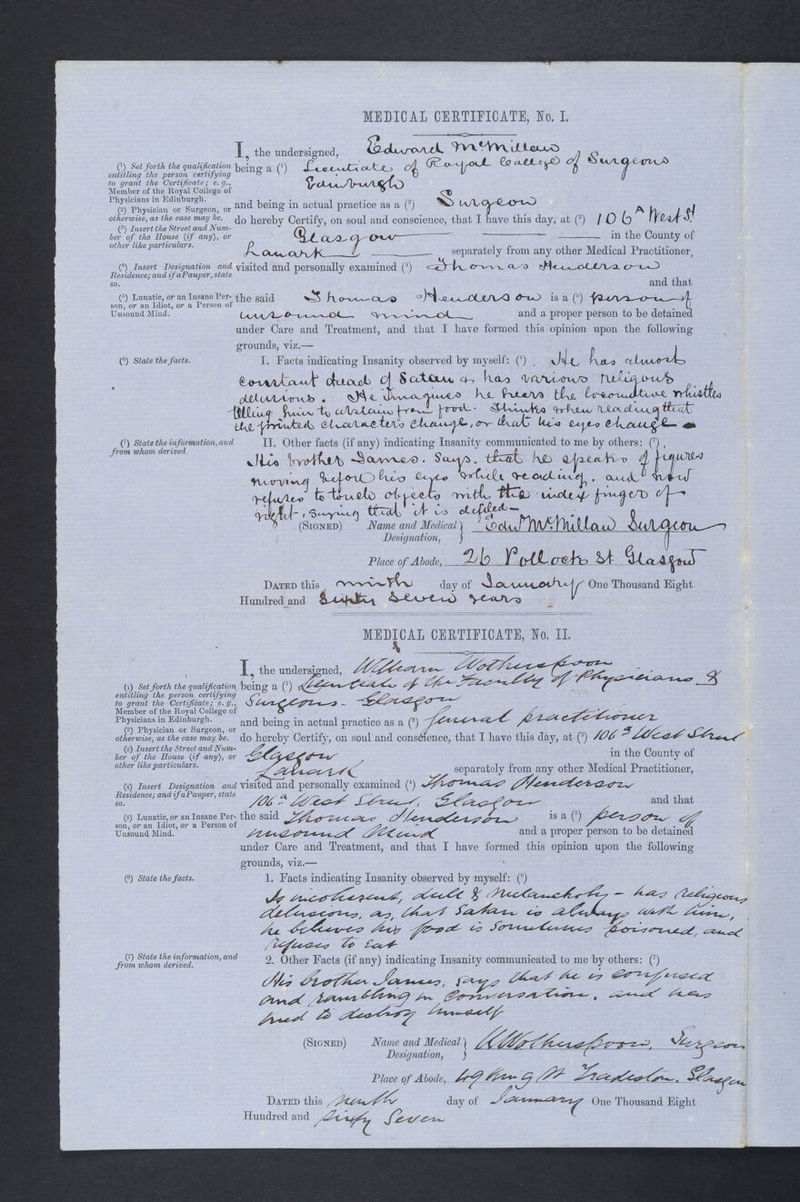 MEDICAL CERTIFICATE, No. I.
I, the undersigned, Edward McMillan
(1) Set forth the qualification entitling the person certifying to grant the Certificate; e. g., Member of the Royal College of Physicians in Edinburgh.
being a (1) Licentiate of Royal College of Surgeons
Edinburgh
(2) Physician or Surgeon, or otherwise, as the case may be.
and being in actual practice as a (2) Surgeon
do hereby Certify, on soul and conscience, that I have this day, at (3) 106A West St
(3) Insert the Street and Number of the House (if any), or other like particulars.
Glasgow in the County of
Lanark separately from any other Medical Practitioner,
(4) Insert Designation and Residence; and if a Pauper, state so.
visited and personally examined (4) Thomas Henderson
and that
(5) Lunatic, or an Insane Person, or an Idiot, or a Person of Unsound Mind.
the said Thomas Henderson is a (5) person of
unsound mind and a proper person to be detained
under Care and Treatment, and that I have formed this opinion upon the following
grounds, viz.—
(6) State the facts.
I. Facts indicating Insanity observed by myself: (6) He has almost
constant dread of Satan & has various religious
delusions. He imagines he hears the locomotive whistles
telling him to abstain from food. Thinks when reading that
the printed characters change, or that his eyes change
(7) State the information, and from whom derived.
II. Other facts (if any) indicating Insanity communicated to me by others: (7)
His brother James. Says. that he speaks of figures
moving before his eyes while reading. and now
refuses to touch objects with the index finger of
right, saying that it is defiled—
(SIGNED) Name and Medical Designation, Edwd McMillan Surgeon
Place of Abode, 26 Pollock St Glasgow
DATED this ninth day of January One Thousand Eight
Hundred and Sixty Seven years
MEDICAL CERTIFICATE, No. II.
I, the undersigned, William Wotherspoon
(1) Set forth the qualification entitling the person certifying to grant the Certificate; e. g., Member of the Royal College of Physicians in Edinburgh.
being a (1) Licentiate of the Faculty of Physicians &
Surgeons - Glasgow
(2) Physician or Surgeon, or otherwise, as the case may be.
and being in actual practice as a (2) general practitioner
do hereby Certify, on soul and conscience, that I have this day, at (3) 106a West Street
(3) Insert the Street and Number of the House (if any), or other like particulars.
Glasgow in the County of
Lanark separately from any other Medical Practitioner,
(4) Insert Designation and Residence; and if a Pauper, state so.
visited and personally examined (4) Thomas Henderson
106a West Street, Glasgow and that
(5) Lunatic, or an Insane Person, or an Idiot, or a Person of Unsound Mind.
the said Thomas Henderson is a (5) person of
unsound Mind and a proper person to be detained
under Care and Treatment, and that I have formed this opinion upon the following
grounds, viz.—
(6) State the facts.
1. Facts indicating Insanity observed by myself: (6)
Is incoherent, dull & melancholy - has religious
delusions, as, that Satan is always with him,
he believes his food is sometimes poisoned, and
refuses to eat
(7) State the information, and from whom derived.
2. Other Facts (if any) indicating Insanity communicated to me by others: (7)
His brother James, says that he is confused
and rambling in conversation, and has
tried to destroy himself
(SIGNED) Name and Medical Designation, W Wotherspoon, Surgeon
Place of Abode, King St Tradeston, Glasgow
DATED this ninth day of January One Thousand Eight
Hundred and Sixty Seven